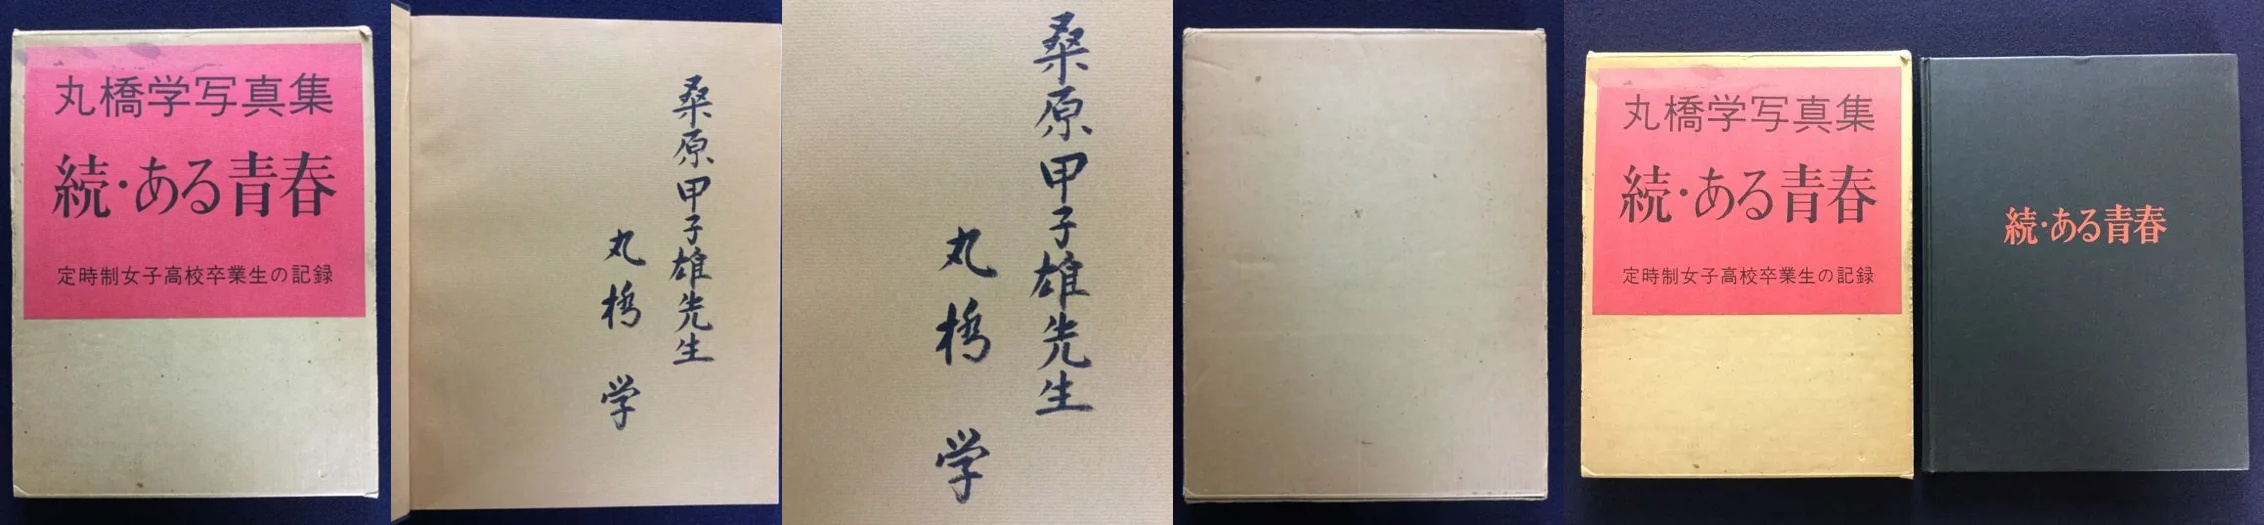 丸橋学写真集
続・ある青春
定時制女子高校卒業生の記録
桑原甲子雄先生
丸橋学
桑原甲子雄先生
丸橋学
丸橋学写真集
続・ある青春
定時制女子高校卒業生の記録
続・ある青春